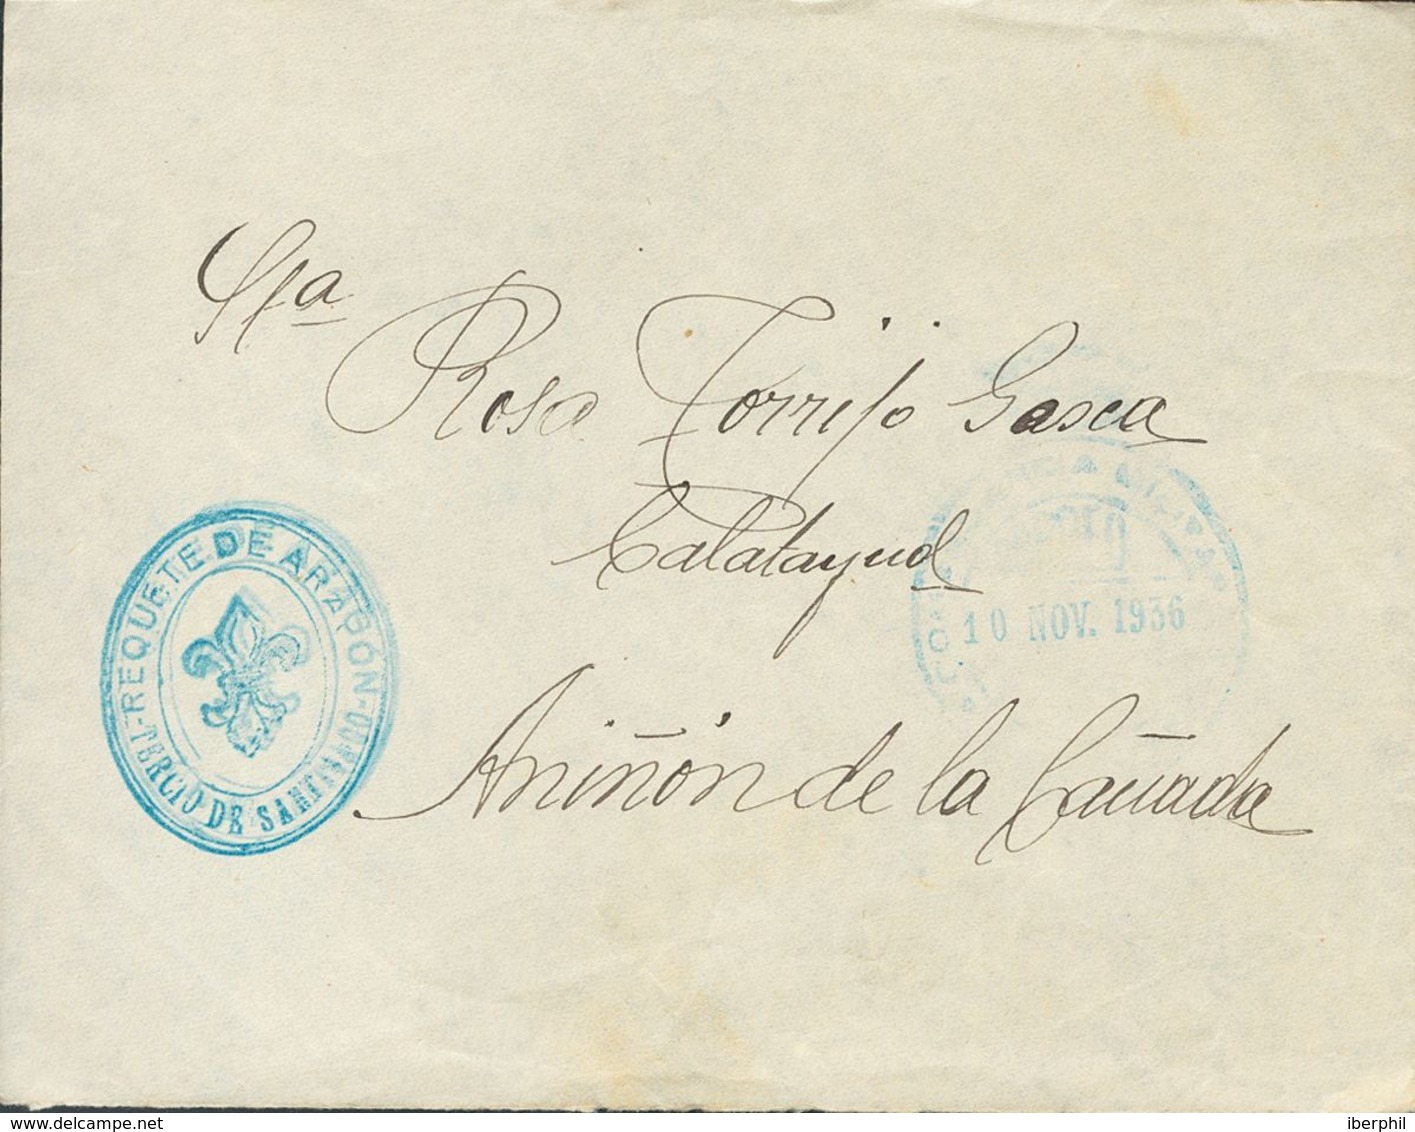 Sta
Rosa Torrijo Gasca
Calatayud
Aniñón de la Cañada
REQUETE DE ARAGÓN
TERCIO DE SANTIAGO
10 NOV. 1936
delcampe.net
iberphil